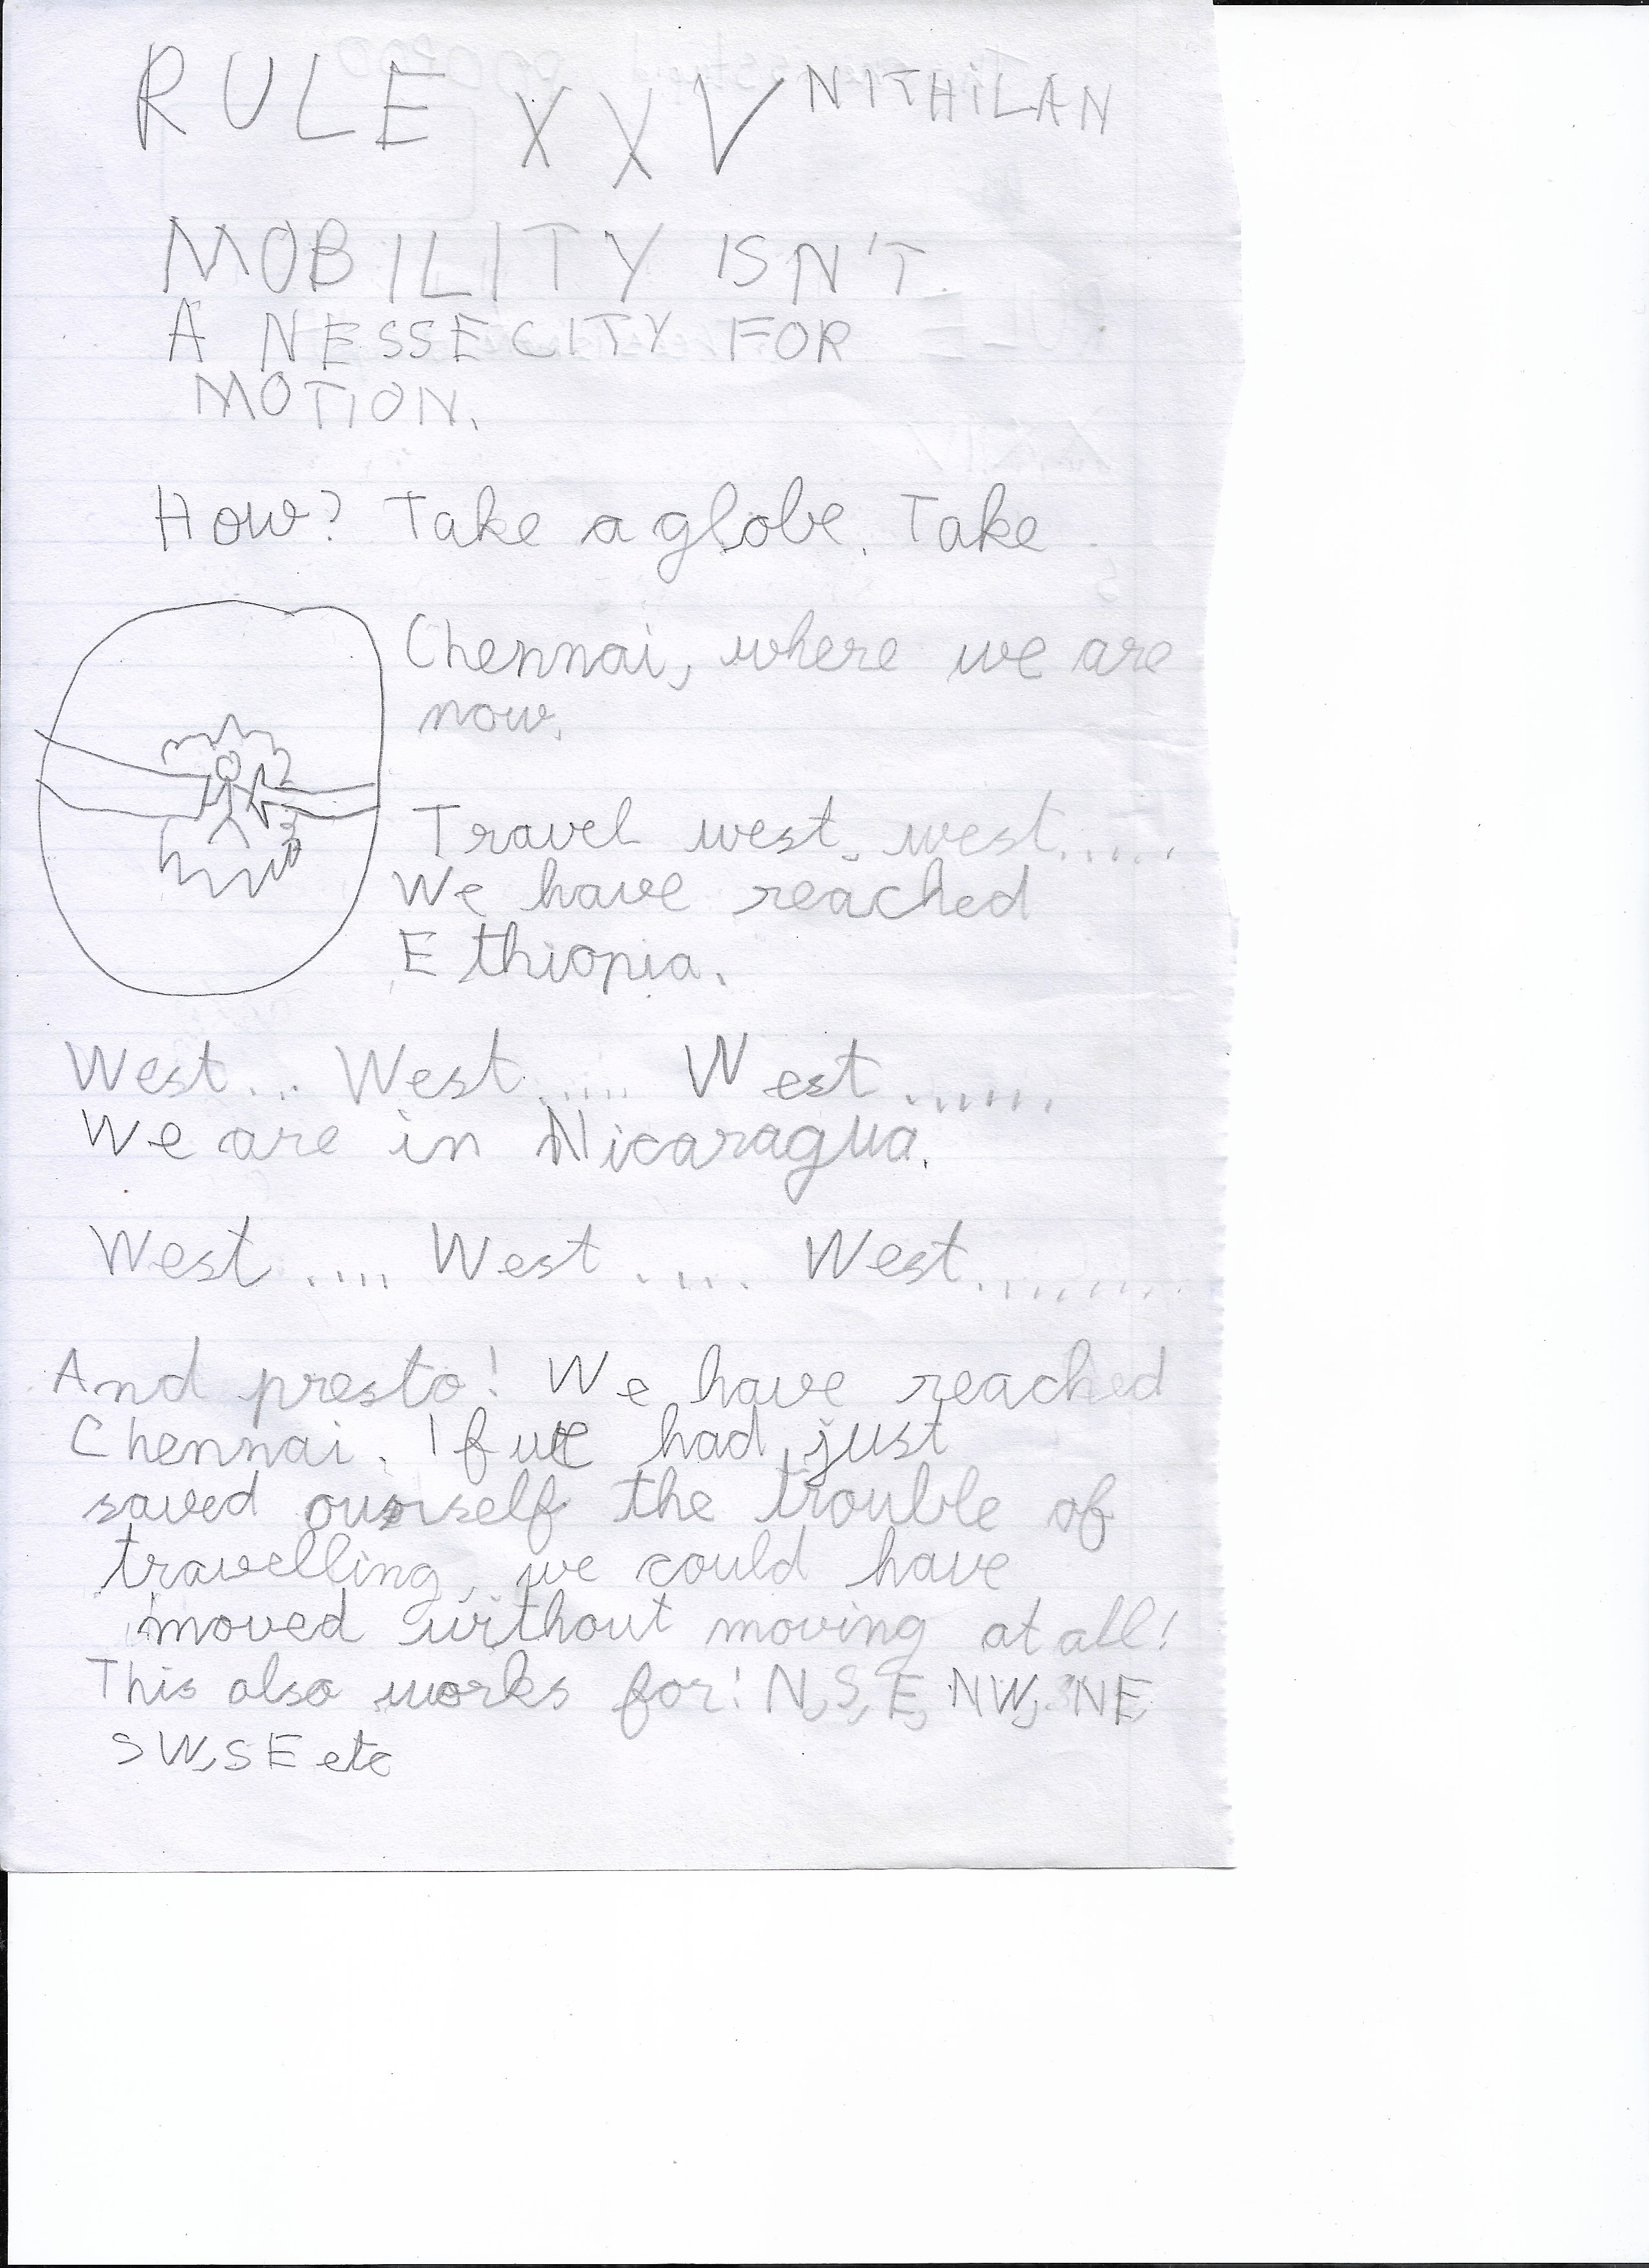 RULE XXV NITHILAN
MOBILITY ISN'T
A NESSECITY FOR
MOTION.
How? Take a globe. Take
Chennai, where we are
now.
Travel west, west......
We have reached
Ethiopia.
West... West..... West.......
We are in Nicaragua.
West.... West..... West.........
And presto! We have reached
Chennai. If we had just
saved ourself the trouble of
travelling, we could have
moved without moving at all!
This also works for: N, S, E, NW, NE,
SW, SE etc